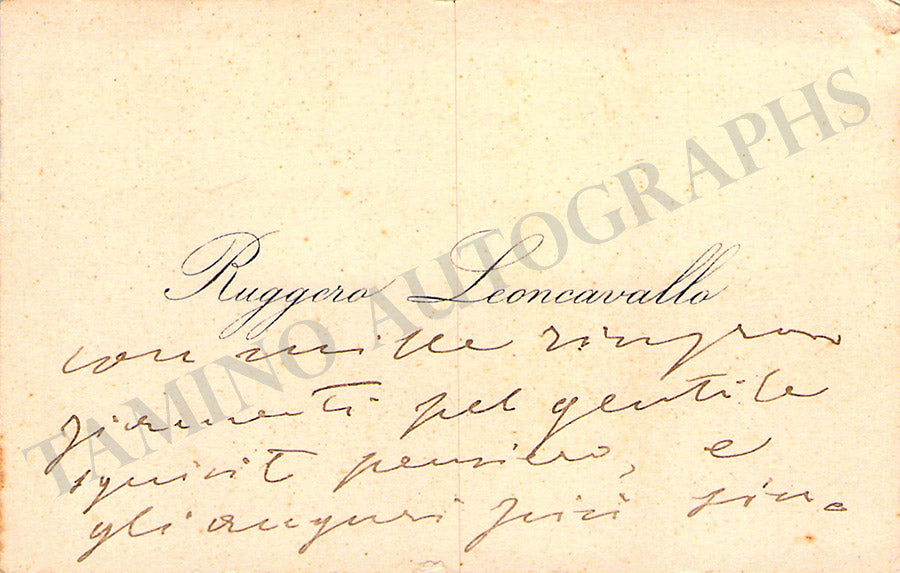 Ruggero Leoncavallo
con mille ringra
ziamenti pel gentile
squisito pensiero, e
gli auguri più sin-
TAMINO AUTOGRAPHS